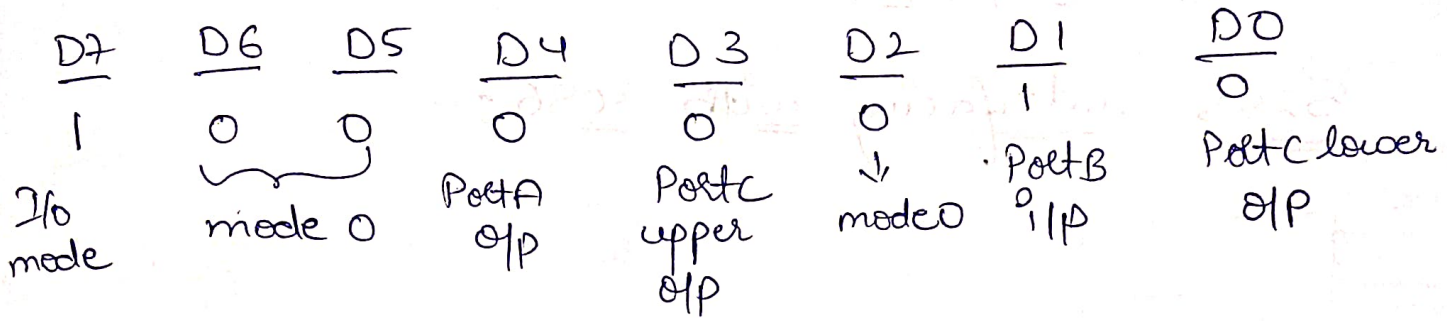 D7 D6 D5 D4 D3 D2 D1 D0
1 0 0 0 0 0 1 0
I/o mode
mode 0
PortA
o/p
Portc
upper
o/p
mode0
PortB
i/p
Port C lower
o/p